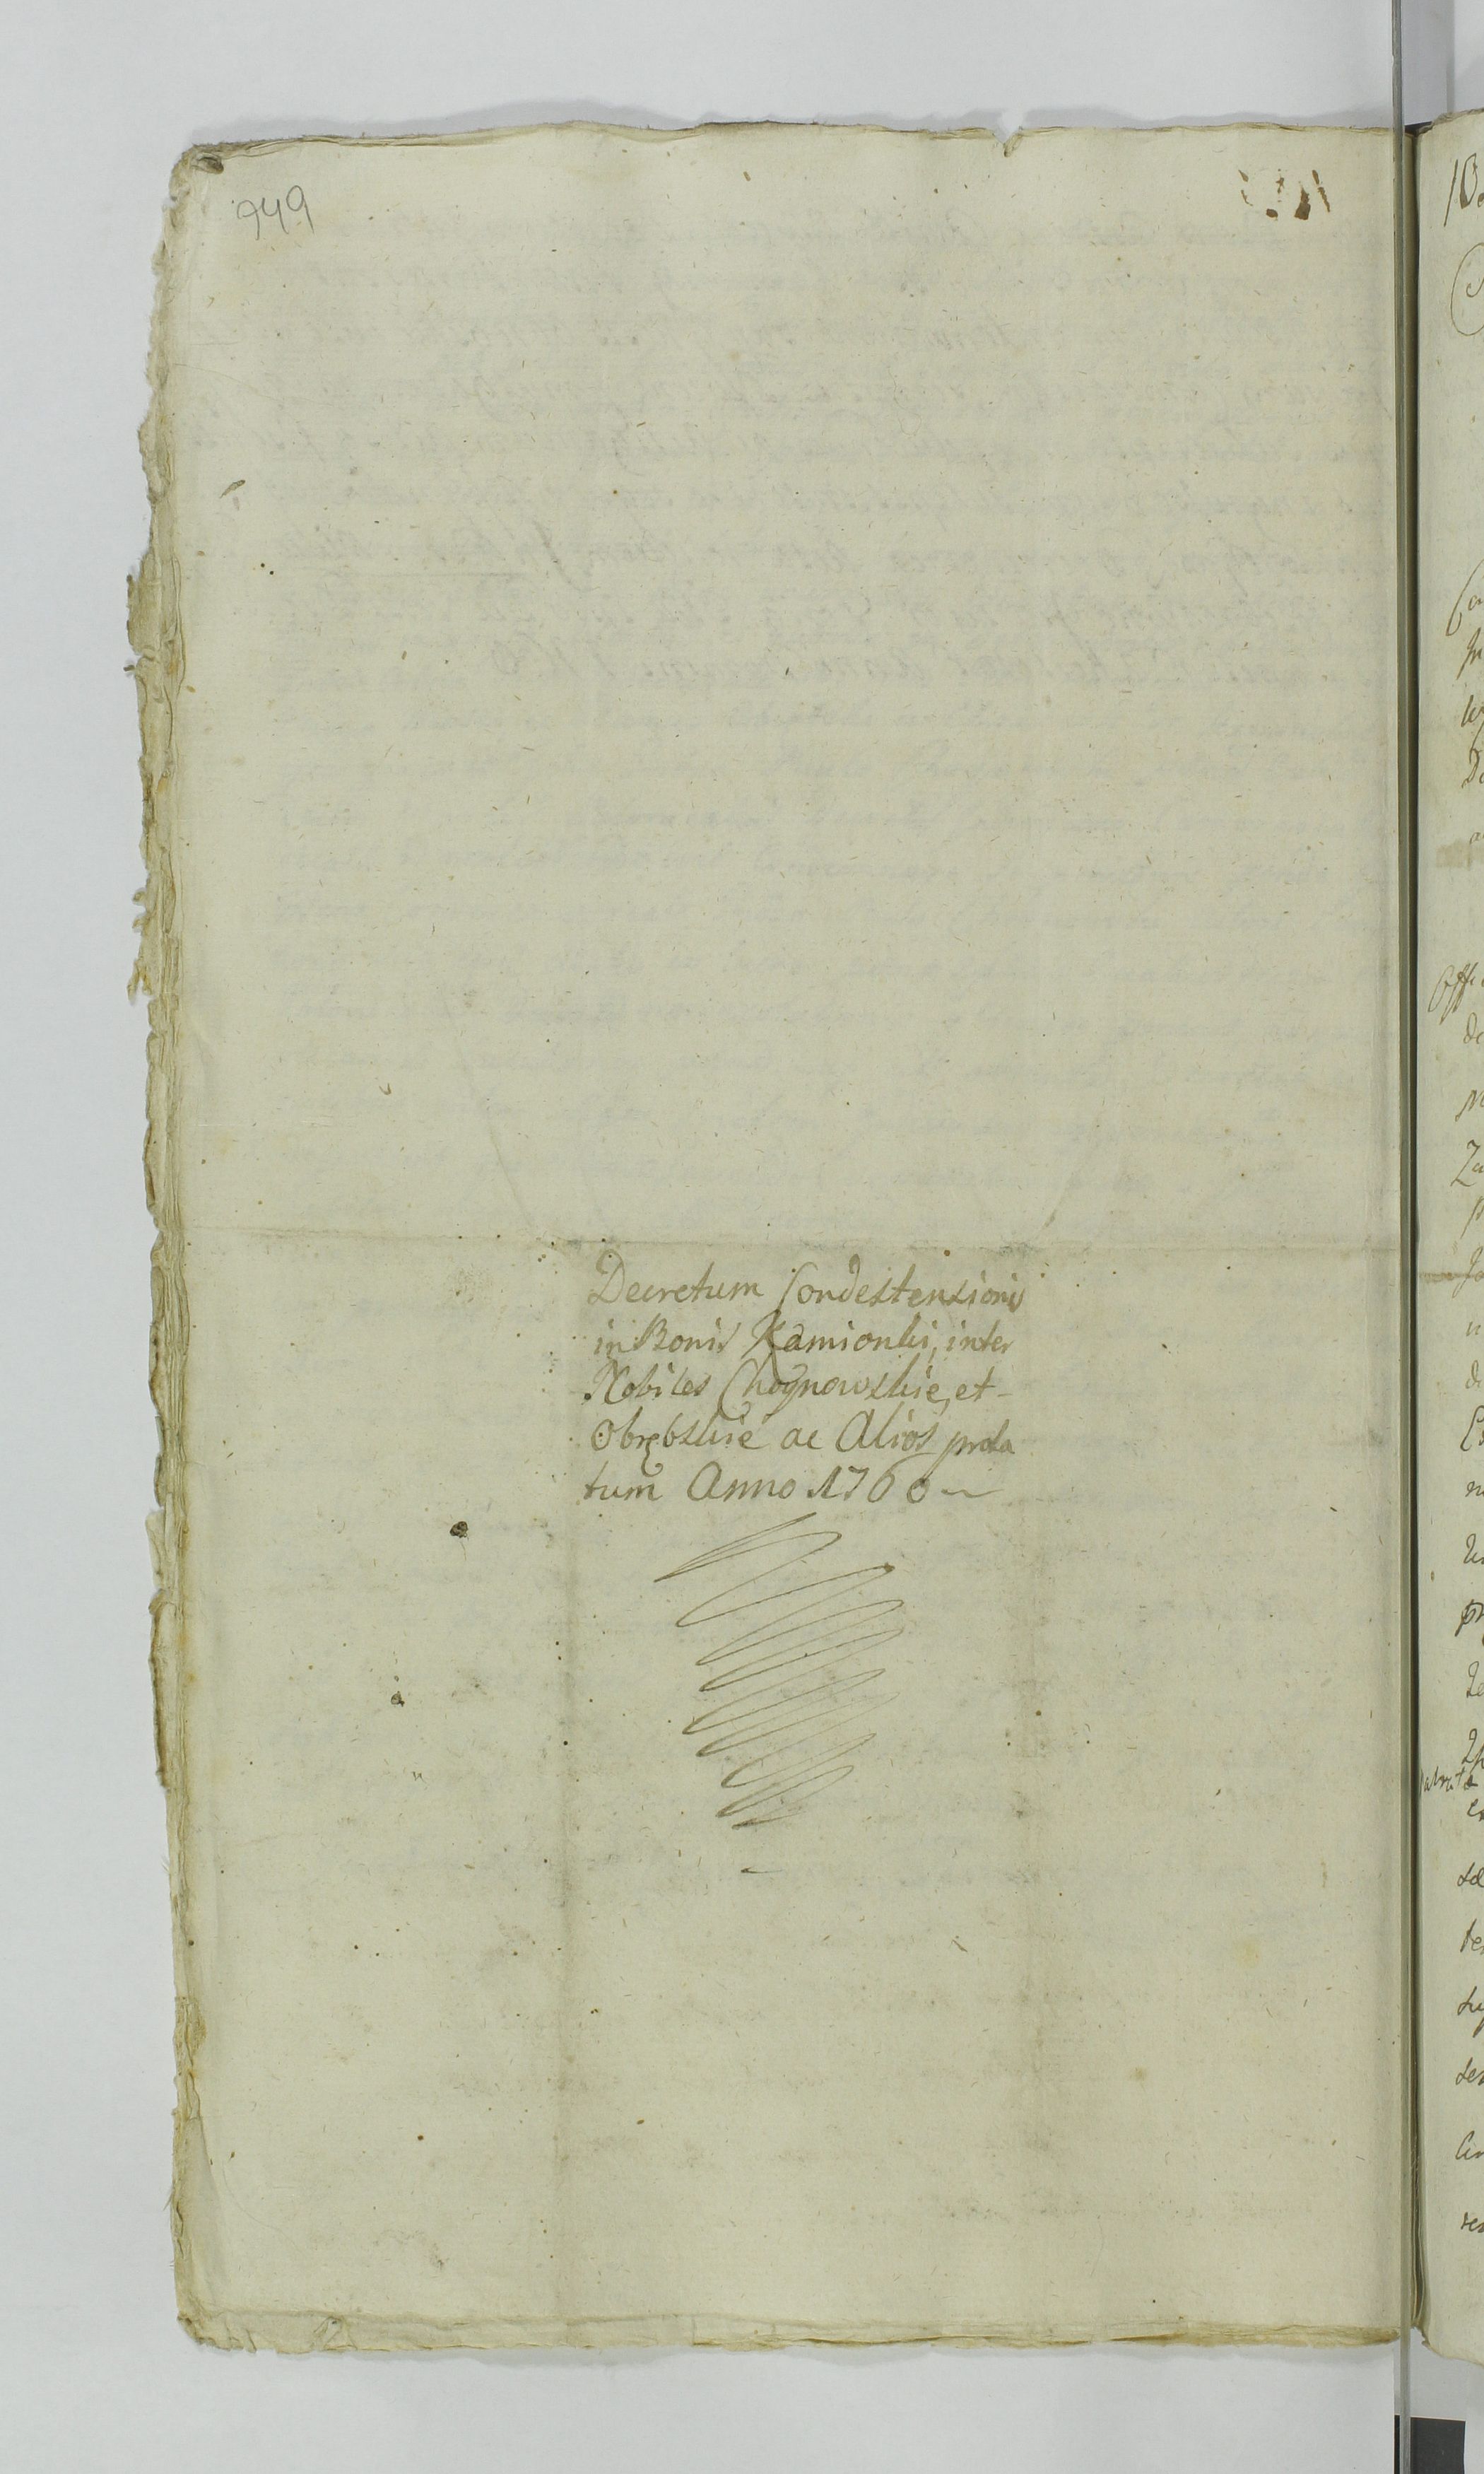 949
Decretum Condestensionis
in Bonis Kamionki, inter
Nobiles Choynowskie, et
Obrębskie ac Alios prola
tum Anno 1760